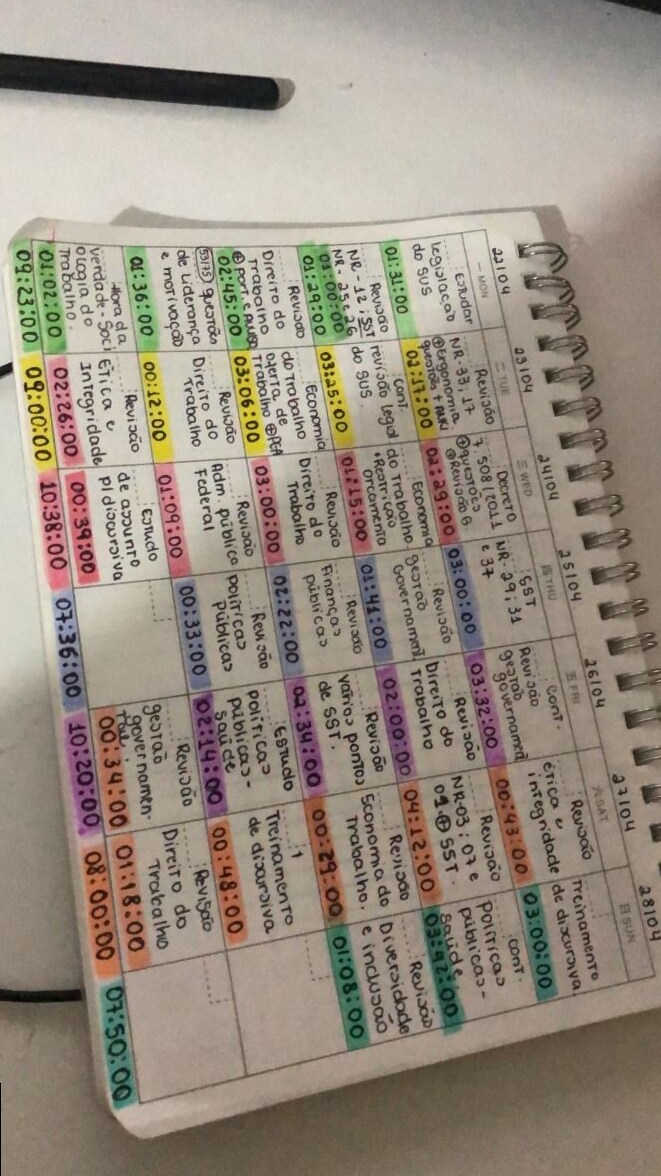 22/04
一 MON
Estudar
legislação
do SUS
01:31:00
Revisão
NR-12; SST
NR-25 e 26
01:00:00
01:29:00
Revisão
Direito do
Trabalho
02:45:00
questões
de Liderança
e motivação
01:36:00
Hora da
verdade - Soci
ologia do
Trabalho.
01:02:00
09:23:00
23/04
二 TUE
Revisão
NR-33, 17
⊕ Ergonomia
02:17:00
cont.
revisão Legisl
do SUS
03:25:00
Economia
do Trabalho
oferta de
Trabalho ⊕ PEA
03:06:00
Revisão
Direito do
Trabalho
00:12:00
Revisão
Ética e
Integridade
02:26:00
09:00:00
24/04
三 WED
Decreto
7.508/2011
⊕ questões
⊕ Revisão
02:29:00
Economia
do Trabalho
• Restrição
orçamento
01:15:00
Revisão
Direito do
Trabalho
03:00:00
Revisão
Adm. pública
Federal
01:09:00
Estudo
de assunto
p/ discursiva
00:39:00
10:38:00
25/04
四 THU
SST
NR-29; 31
e 37
03:00:00
Revisão
gestão
Governament.
01:41:00
Revisão
Finanças
públicas
02:22:00
Revisão
políticas
públicas
00:33:00
07:36:00
26/04
五 FRI
cont.
Revisão
gestão
governament
03:32:00
Revisão
Direito do
Trabalho
02:00:00
Revisão
vários pontos
de SST.
02:34:00
Estudo
políticas
públicas -
saúde
02:14:00
Revisão
gestão
governamen-
tal.
00:34:00
10:20:00
27/04
六 SAT
Revisão
ética e
integridade
00:43:00
Revisão
NR-03; 07 e
09 ⊕ SST.
04:12:00
Revisão
Economia do
Trabalho.
00:29:00
Treinamento
de discursiva
00:48:00
Revisão
Direito do
Trabalho
01:18:00
08:00:00
28/04
日 SUN
Treinamento
de discursiva.
03:00:00
cont.
políticas
públicas -
saúde.
03:42:00
Revisão
Diversidade
e inclusão
01:08:00
07:50:00